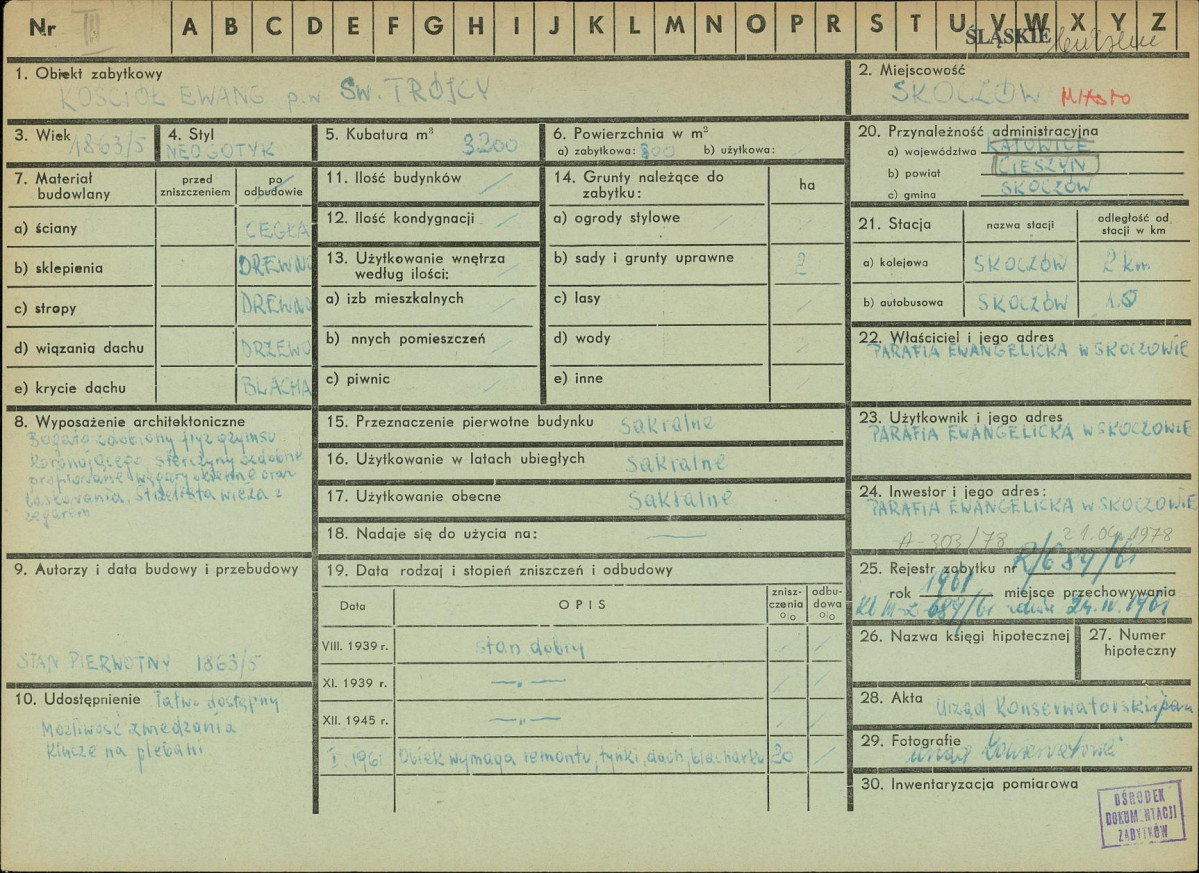 Nr III A B C D E F G H I J K L M N O P R S T U V W X Y Z
ŚLĄSKIE
1. Obiekt zabytkowy
KOŚCIÓŁ EWANG p.w ŚW. TRÓJCY
2. Miejscowość
SKOCZÓW MIASTO
3. Wiek
1863/5
4. Styl
NEOGOTYK
5. Kubatura m³ 3200
6. Powierzchnia w m²
a) zabytkowa: 300 b) użytkowa:
7. Materiał budowlany
przed zniszczeniem
po odbudowie
a) ściany CEGŁA
b) sklepienia DREWNO
c) stropy DREWNO
d) wiązania dachu DRZEWO
e) krycie dachu BLACHA
8. Wyposażenie architektoniczne
Bogato zdobiony fryz gzymsu
koronującego, sterczyny ozdobne
profilowane wspary okienne oraz
laskowania. Strzelista wieża z
zegarem
9. Autorzy i data budowy i przebudowy
STAN PIERWOTNY 1863/5
10. Udostępnienie Łatwo dostępny
Możliwość zwiedzania
klucze na plebani
11. Ilość budynków
12. Ilość kondygnacji
13. Użytkowanie wnętrza
według ilości:
a) izb mieszkalnych
b) nnych pomieszczeń
c) piwnic
14. Grunty należące do
zabytku:
ha
a) ogrody stylowe
b) sady i grunty uprawne 2
c) lasy
d) wody
e) inne
15. Przeznaczenie pierwotne budynku Sakralne
16. Użytkowanie w latach ubiegłych Sakralne
17. Użytkowanie obecne Sakralne
18. Nadaje się do użycia na: —
19. Data rodzaj i stopień zniszczeń i odbudowy
Data OPIS znisz-czenia o|o odbu-dowa o|o
VIII. 1939 r. stan dobry
XI. 1939 r. —„—
XII. 1945 r. —„—
I. 1961 Obiek wymaga remontu, tynki, dach, blacharka 20
20. Przynależność administracyjna
a) województwo KATOWICE
b) powiat CIESZYN
c) gmina SKOCZÓW
21. Stacja
nazwa stacji
odległość od. stacji w km
a) kolejowa SKOCZÓW 2 km.
b) autobusowa SKOCZÓW 1.0
22. Właściciel i jego adres
PARAFIA EWANGELICKA W SKOCZOWIE
23. Użytkownik i jego adres
PARAFIA EWANGELICKA W SKOCZOWIE
24. Inwestor i jego adres:
PARAFIA EWANGELICKA W SKOCZOWIE
A-303/78 21.04.1978
25. Rejestr zabytku nr R/689/61
rok 1961 miejsce przechowywania
Kl III-2-689/61 24.IV.1961
26. Nazwa księgi hipotecznej
27. Numer
hipoteczny
28. Akta Urząd Konserwatorski
29. Fotografie
Urząd Konserwatorski
30. Inwentaryzacja pomiarowa
OŚRODEK
DOKUMENTACJI
ZABYTKÓW